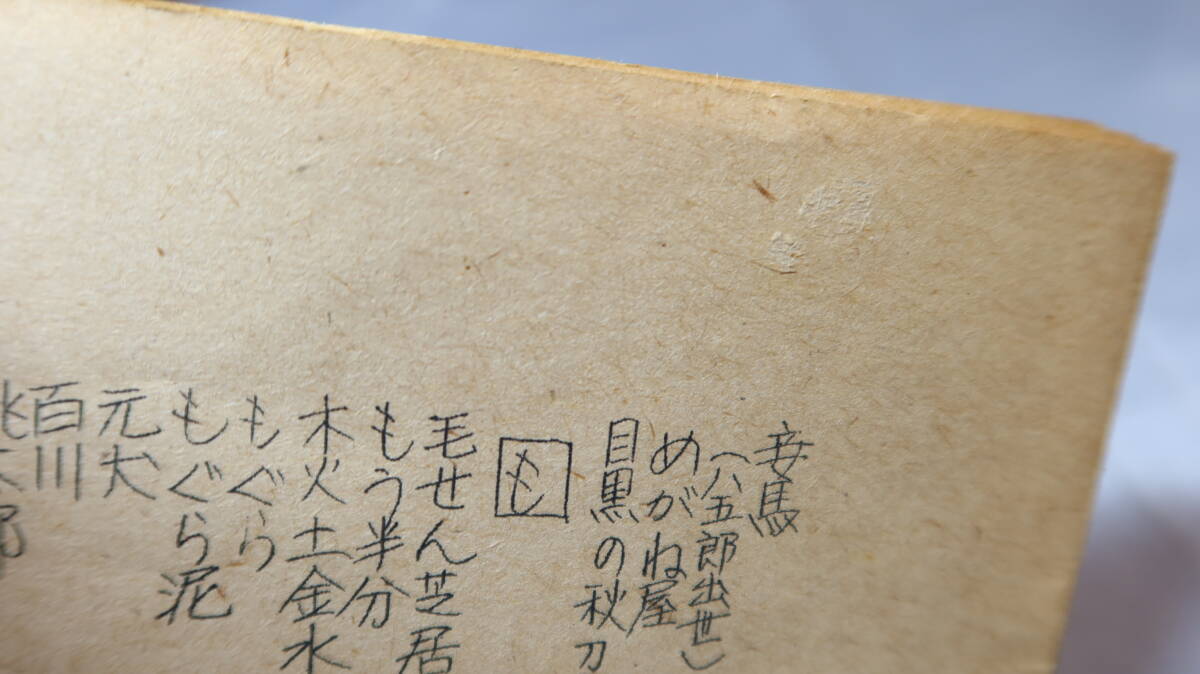 妾馬
（八五郎出世）
めがね屋
目黒の秋刀
も
毛せん芝居
もう半分
木火土金水
もぐら
もぐら泥
元犬
百川